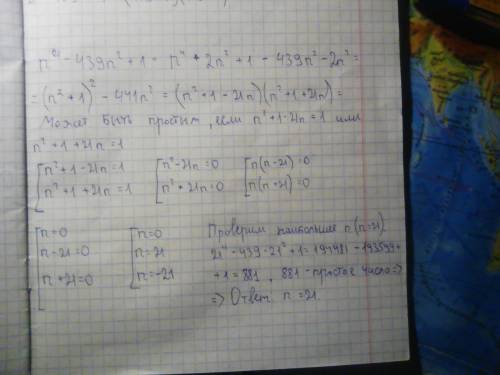 n⁴ - 439n² + 1 = n⁴ + 2n² + 1 - 439n² - 2n² =
= (n² + 1)² - 441n² = (n² + 1 - 21n)(n² + 1 + 21n) =
Может быть простым, если n² + 1 - 21n = 1 или
n² + 1 + 21n = 1
n² + 1 - 21n = 1 n² - 21n = 0 n(n - 21) = 0
n² + 1 + 21n = 1 n² + 21n = 0 n(n + 21) = 0
n = 0 n = 0 Проверим наибольшее n (n = 21)
n - 21 = 0 n = 21 21⁴ - 439 · 21² + 1 = 194481 - 193599 +
n + 21 = 0 n = -21 + 1 = 881, 881 - простое число =>
=> Ответ n = 21.